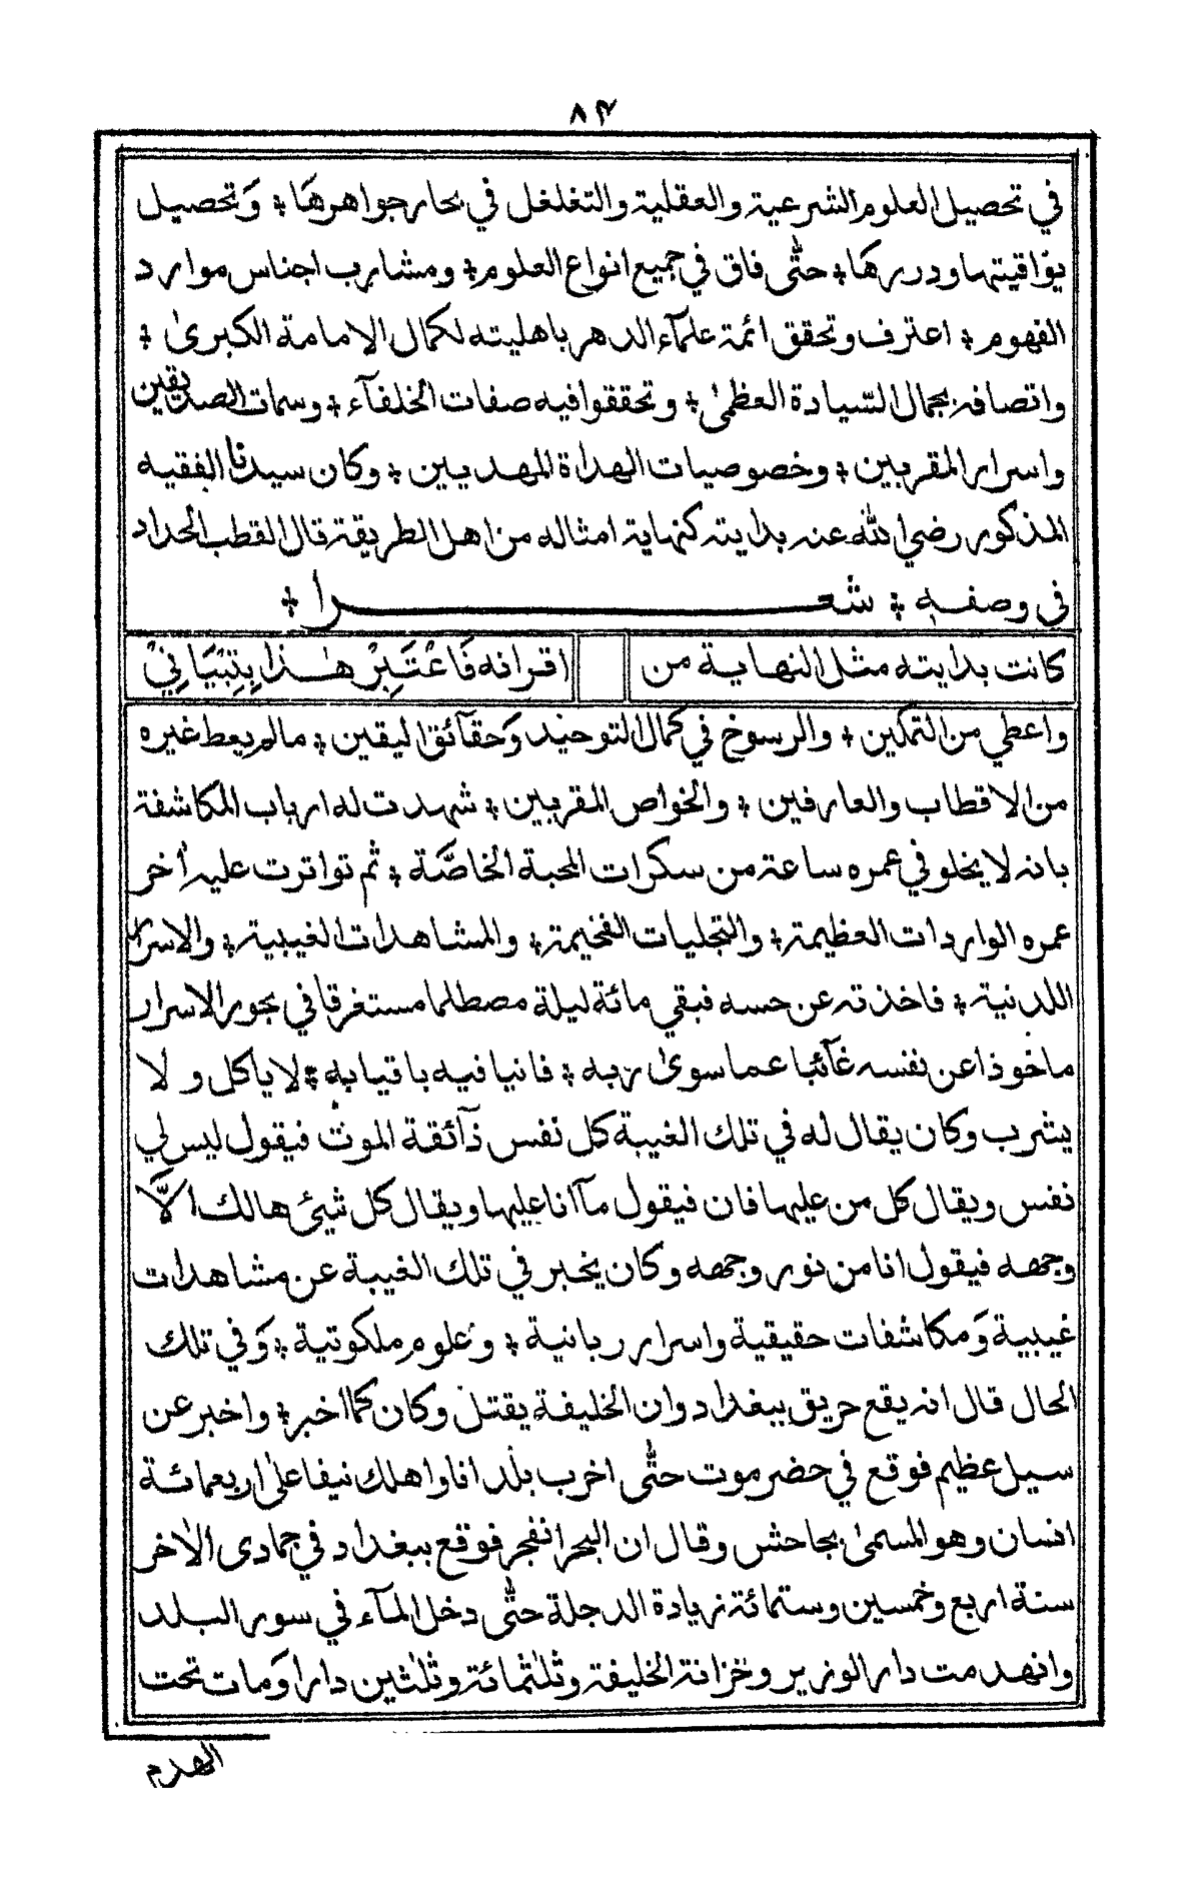 ٨٤
في تحصيل العلوم الشرعية والعقلية والتغلغل في بحار جواهرهَا ؞ وَتحصيل
يوَاقيتها ودررهَا ؞ حتّٰى فاق في جميع انواع العلوم ؞ ومشارب اجناس موارد
الفهوم ؞ اعترف وتحقق ائمة علمآء الدهر باهليته لكمال الامامة الكبرىٰ ؞
واتصافه بجمال السّيادة العظمىٰ ؞ وتحققوا فيه صفات الخلفآء ؞ وسمات الصديقين
واسرار المقربين ؞ وخصوصيات الهداة المهديين ؞ وكان سيدنا الفقيه
المذكور رضي الله عنه بدايته كنهاية امثاله من اهل الطريقة قال القطب الحداد
في وصفه ؞ شعـــرا ؞
كانت بدايته مثل النهاية من اقرانه فَاعْتَبِرْ هٰذا بِتِبْيَانِيْ
واعطي من التمكين ؞ والرسوخ في كمال التوحيد وَحقآئق اليقين ؞ مالم يعط غيره
من الاقطاب والعارفين ؞ والخواص المقربين ؞ شهدت له ارباب المكاشفة
بانه لا يخلو في عمره ساعة من سكرات المحبة الخاصَّة ؞ ثم تواترت عليه أخر
عمره الواردات العظيمة ؞ والتجليات الفخيمة ؞ والمشاهدات الغيبية ؞ والاسرار
اللدنية ؞ فاخذته عن حسه فبقي مائة ليلة مصطلما مستغرقا في بحور الاسرار
ماخوذا عن نفسه غآئبا عما سوىٰ ربه ؞ فانيا فيه باقيا به ؞ لا ياكل و لا
يشرب وكان يقال له في تلك الغيبة كل نفس ذآئقة الموت فيقول ليس لي
نفس ويقال كل من عليها فان فيقول مآ انا عليها ويقال كل شيئ هالك الاَّ
وجهه فيقول انا من نور وجهه وكان يخبر في تلك الغيبة عن مشاهدات
غيبية وَمكاشفات حقيقية واسرار ربانية ؞ وعلوم ملكوتية ؞ وَفي تلك
الحال قال انه يقع حريق ببغداد وان الخليفة يقتل وكان كما اخبر ؞ واخبر عن
سيل عظيم فوقع في حضرموت حتّٰى اخرب بلدانا واهلك نيفا علىٰ اربعمائة
انسان وهو المسمىٰ بجاحش وقال ان البحر انفجر فوقع ببغداد في جمادى الاٰخر
سنة اربع وخمسين وستمائة زيادة الدجلة حتّٰى دخل المآء في سور البلد
وانهدمت دار الوزير وخزانة الخليفة وثلٰثمائة وثلٰثين دارا وَمات تحت
الهدم